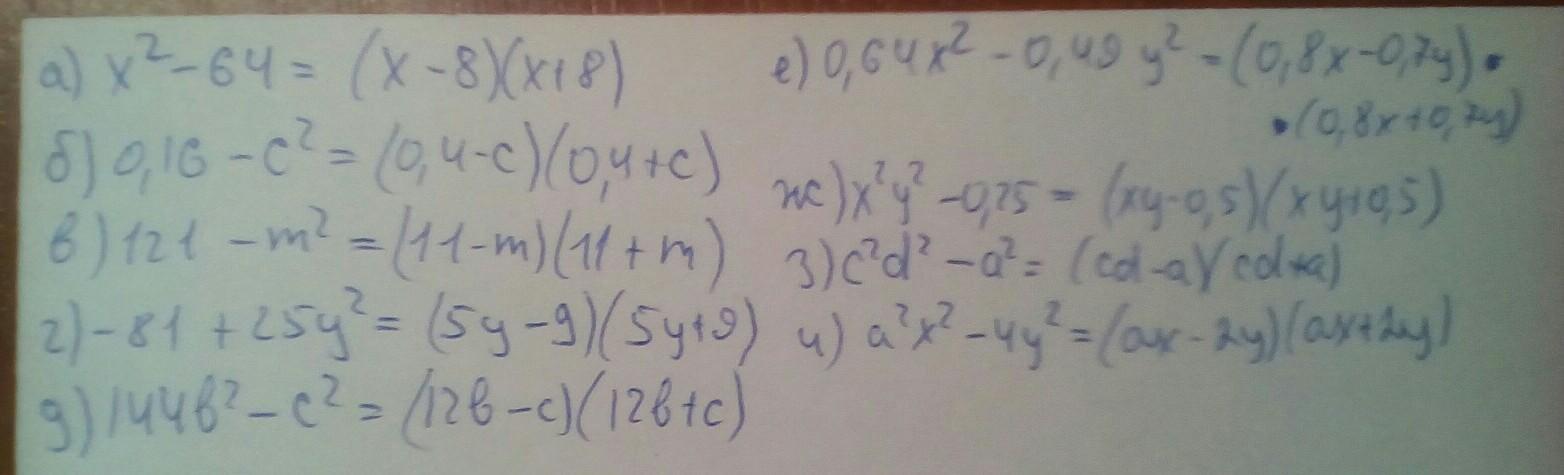 а) x² - 64 = (x - 8)(x + 8)
б) 0,16 - c² = (0,4 - c)(0,4 + c)
в) 121 - m² = (11 - m)(11 + m)
г) -81 + 25y² = (5y - 9)(5y + 9)
д) 144b² - c² = (12b - c)(12b + c)
е) 0,64x² - 0,49y² = (0,8x - 0,7y) •
• (0,8x + 0,7y)
ж) x²y² - 0,25 = (xy - 0,5)(xy + 0,5)
з) c²d² - a² = (cd - a)(cd + a)
и) a²x² - 4y² = (ax - 2y)(ax + 2y)